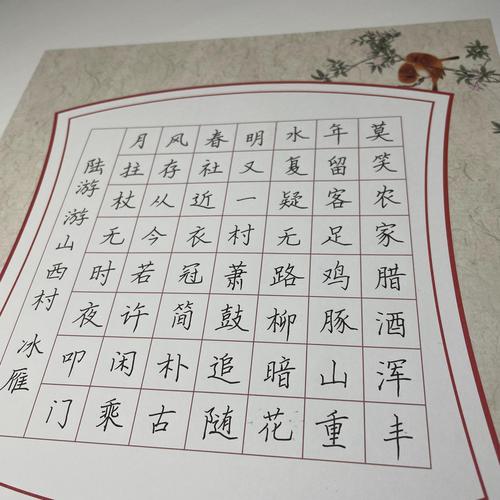 莫笑农家腊酒浑丰
年留客足鸡豚山重
水复疑无路柳暗花
明又一村萧鼓追随
春社近衣冠简朴古
风存从今若许闲乘
月拄杖无时夜叩门
陆游 游山西村
冰雁